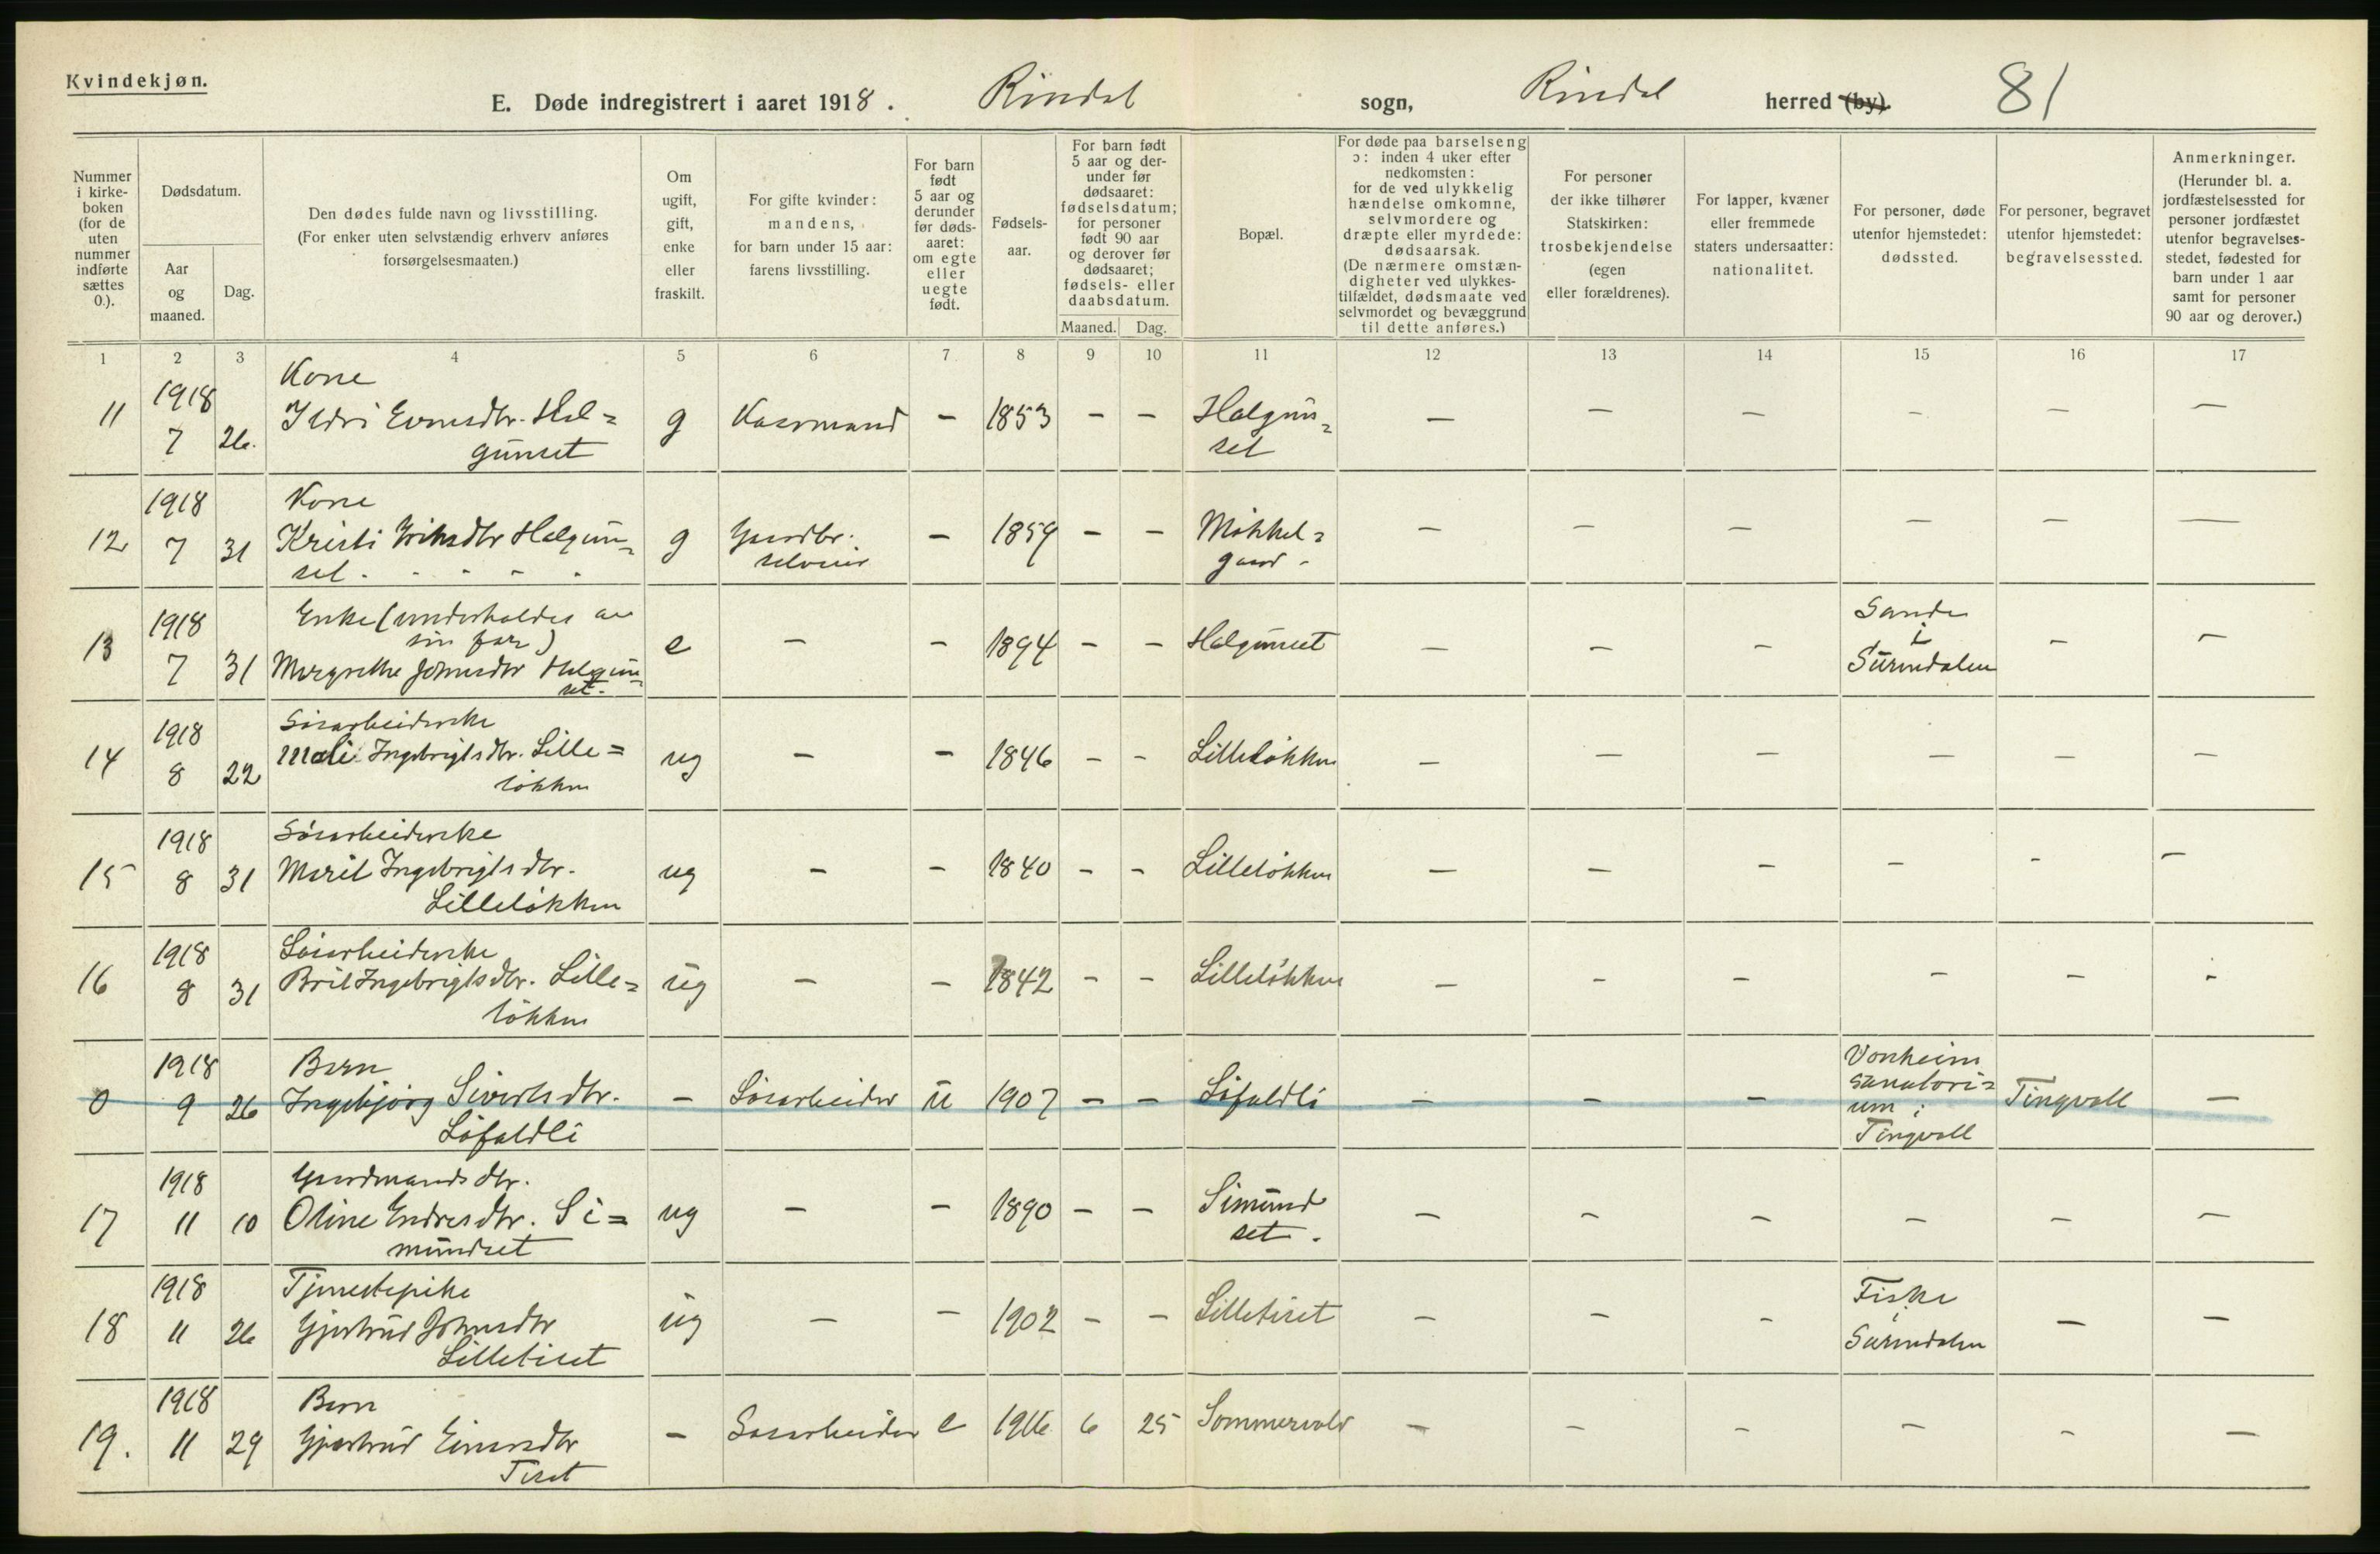 Kvindekjøn.
E. Døde indregistrert i aaret 1918. Rindal sogn, Rindal herred (by). 81
Nummer i kirkeboken (for de uten nummer indførte sættes 0.).
Dødsdatum.
Aar og maaned.
Dag.
Den dødes fulde navn og livsstilling.
(For enker uten selvstændig erhverv anføres forsørgelsesmaaten.)
Om ugift, gift, enke eller fraskilt.
For gifte kvinder: mandens, for barn under 15 aar: farens livsstilling.
For barn født 5 aar og derunder før dødsaaret: om egte eller uegte født.
Fødselsaar.
For barn født 5 aar og derunder før dødsaaret: fødselsdatum; for personer født 90 aar og derover før dødsaaret; fødsels- eller daabsdatum.
Maaned. Dag.
Bopæl.
For døde paa barselseng ɔ: inden 4 uker efter nedkomsten: for de ved ulykkelig hændelse omkomne, selvmordere og dræpte eller myrdede: dødsaarsak. (De nærmere omstændigheter ved ulykkestilfældet, dødsmaate ved selvmordet og bevæggrund til dette anføres.)
For personer der ikke tilhører Statskirken: trosbekjendelse (egen eller forældrenes).
For lapper, kvæner eller fremmede staters undersaatter: nationalitet.
For personer, døde utenfor hjemstedet: dødssted.
For personer, begravet utenfor hjemstedet: begravelsessted.
Anmerkninger. (Herunder bl. a. jordfæstelsessted for personer jordfæstet utenfor begravelsesstedet, fødested for barn under 1 aar samt for personer 90 aar og derover.)
1 2 3 4 5 6 7 8 9 10 11 12 13 14 15 16 17
11 1918 7 26. Kone
Ildri Evensdtr. Halgunset g Kaarmand – 1853 – – Halgunset – – – – – –
12 1918 7 31 Kone
Kristi Eriksdtr Halgunset g Gaardbr. selveier – 1859 – – Mikkelgaard – – – – – –
13 1918 7 31 Enke (underholdes av sin far)
Margrethe Johnsdtr Halgunset. e – – 1894 – – Halgunset – – – Sande i Surendalen – –
14 1918 8 22 Løsarbeiderske
Mali Ingebrigtsdtr. Lilleløkken ug – – 1846 – – Lilleløkken – – – – – –
15 1918 8 31 Løsarbeiderske
Marit Ingebrigtsdtr. Lilleløkken ug – – 1840 – – Lilleløkken – – – – – –
16 1918 8 31 Løsarbeiderske
Brit Ingebrigtsdtr. Lilleløkken ug – – 1842 – – Lilleløkken – – – – – –
0 1918 9 26 Barn
Ingebjørg Sivertsdtr. Løfaldli – Løsarbeider u 1907 – – Løfaldli – – – Vonheim sanatorium i Tingvoll Tingvoll –
17 1918 11 10 Gaardmandsdtr.
Oline Endresdtr. Simundset ug – – 1890 – – Simundset. – – – – – –
18 1918 11 26 Tjenestepike
Gjertrud Johnsdtr Lilletiset ug – – 1902 – – Lilletiset – – – Fiske i Surendalen – –
19. 1918 11 29 Barn
Gjertrud Einarsdtr Tiset – Løsarbeider e 1916 6 25 Sommervold – – – – – –